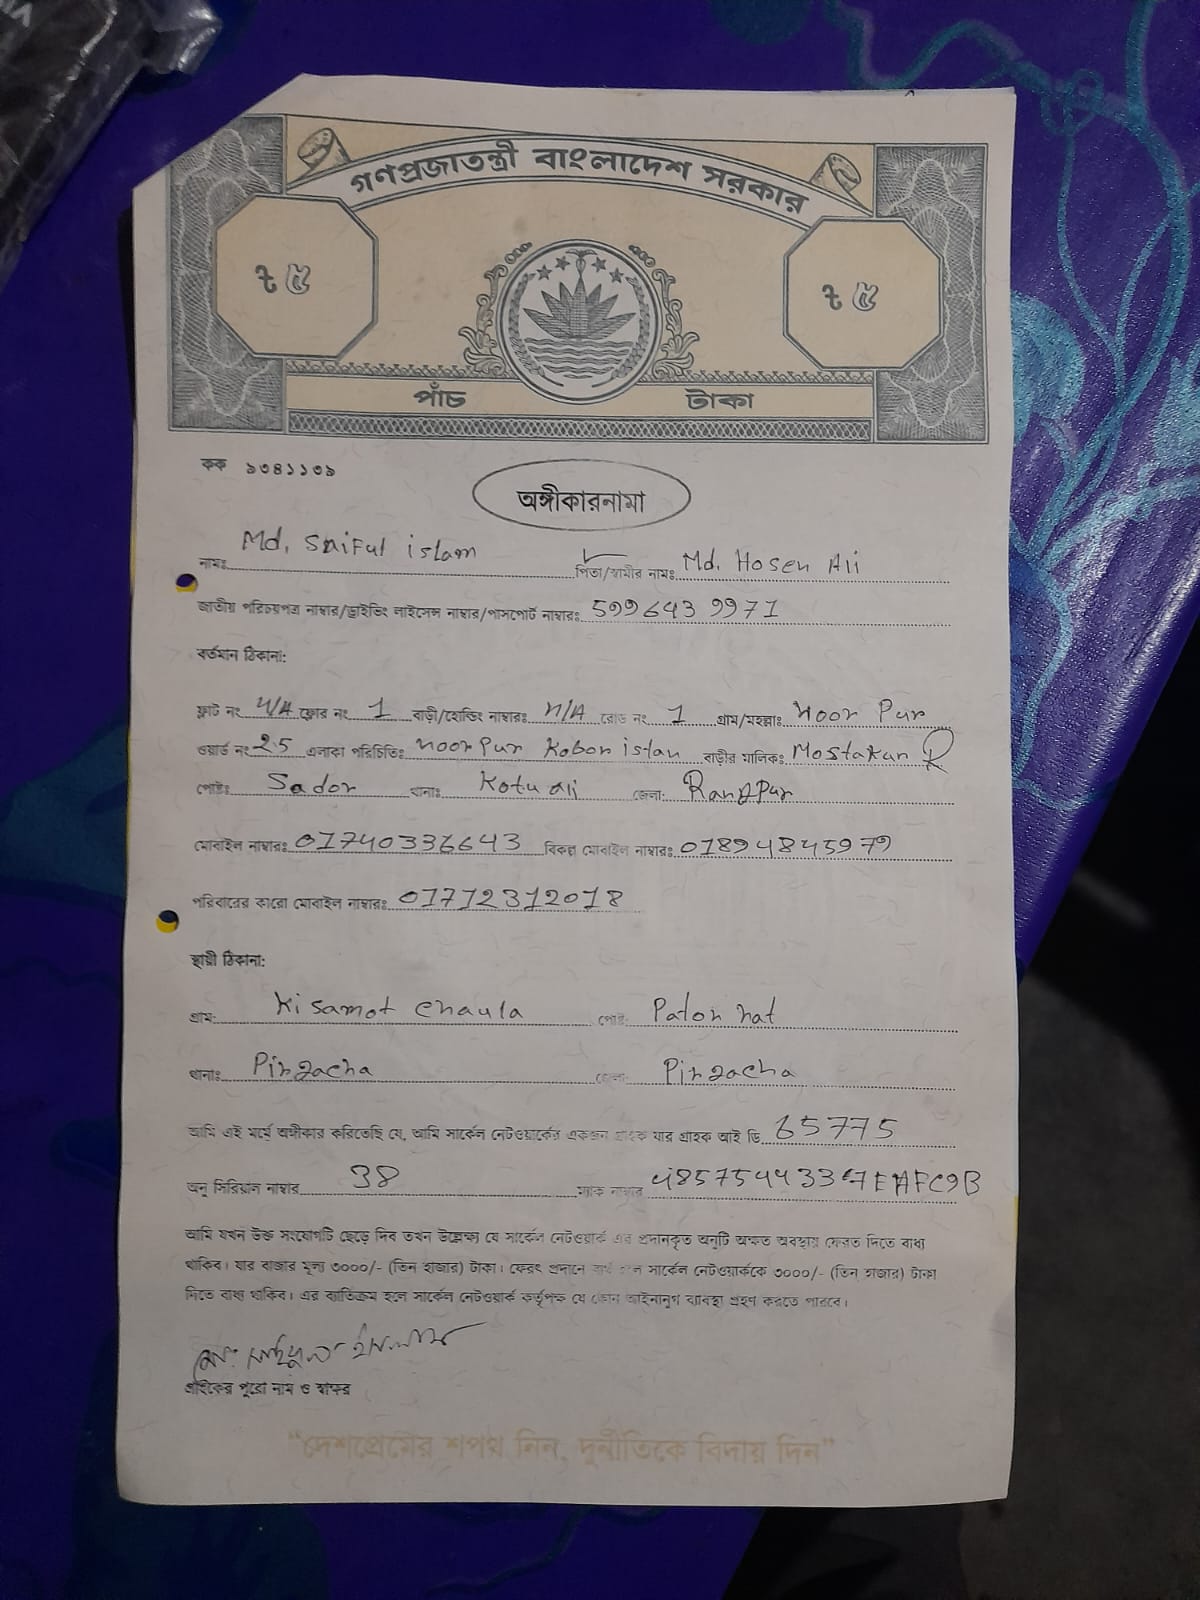 গণপ্রজাতন্ত্রী বাংলাদেশ সরকার
৳ ৫ ৳ ৫
পাঁচ টাকা
কক ৯৩৪১১৩৯
অঙ্গীকারনামা
নামঃ Md. Saiful islam পিতা/স্বামীর নামঃ Md. Hosen Ali
জাতীয় পরিচয়পত্র নাম্বার/ড্রাইভিং লাইসেন্স নাম্বার/পাসপোর্ট নাম্বারঃ 5996439971
বর্তমান ঠিকানা:
ফ্লাট নং N/A ফ্লোর নং 1 বাড়ী/হোল্ডিং নাম্বারঃ N/A রোড নং 1 গ্রাম/মহল্লাঃ Noor Pur
ওয়ার্ড নং 25 এলাকা পরিচিতিঃ Noor Pur Kobor istan বাড়ীর মালিকঃ Mostakun R
পোষ্টঃ Sador থানাঃ Kotuali জেলাঃ Rangpur
মোবাইল নাম্বারঃ 01740336643 বিকল্প মোবাইল নাম্বারঃ 01894845979
পরিবারের কারো মোবাইল নাম্বারঃ 01712312018
স্থায়ী ঠিকানা:
গ্রাম: Kisamot Chaula পোষ্ট: Palon hat
থানাঃ Pirgacha জেলা: Pirgacha
আমি এই মর্মে অঙ্গীকার করিতেছি যে, আমি সার্কেল নেটওয়ার্কের একজন গ্রাহক যার গ্রাহক আই ডি 65775
অনু সিরিয়াল নাম্বার 38 ম্যাক নাম্বার
আমি যখন উক্ত সংযোগটি ছেড়ে দিব তখন উল্লেখ্য যে সার্কেল নেটওয়ার্ক এর প্রদানকৃত অনুটি অক্ষত অবস্থায় ফেরত দিতে বাধ্য
থাকিব। যার বাজার মূল্য ৩০০০/- (তিন হাজার) টাকা। ফেরৎ প্রদানে ব্যর্থ হলে সার্কেল নেটওয়ার্ককে ৩০০০/- (তিন হাজার) টাকা
দিতে বাধ্য থাকিব। এর ব্যতিক্রম হলে সার্কেল নেটওয়ার্ক কর্তৃপক্ষ যে কোন আইনানুগ ব্যবস্থা গ্রহণ করতে পারবে।
মোঃ সাইফুল ইসলাম
গ্রাহকের পুরো নাম ও স্বাক্ষর
"দেশপ্রেমের শপথ নিন, দুর্নীতিকে বিদায় দিন"